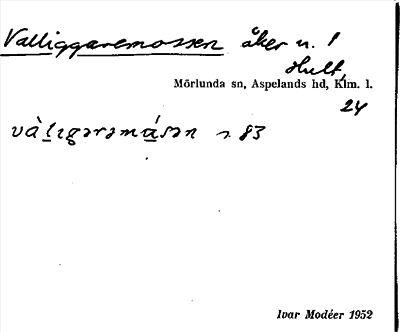 Valliggaremossen åker n. 1
Hult,
Mörlunda sn, Aspelands hd, Klm. l.
24
và̀lıgərəmǻsən 83
Ivar Modéer 1952